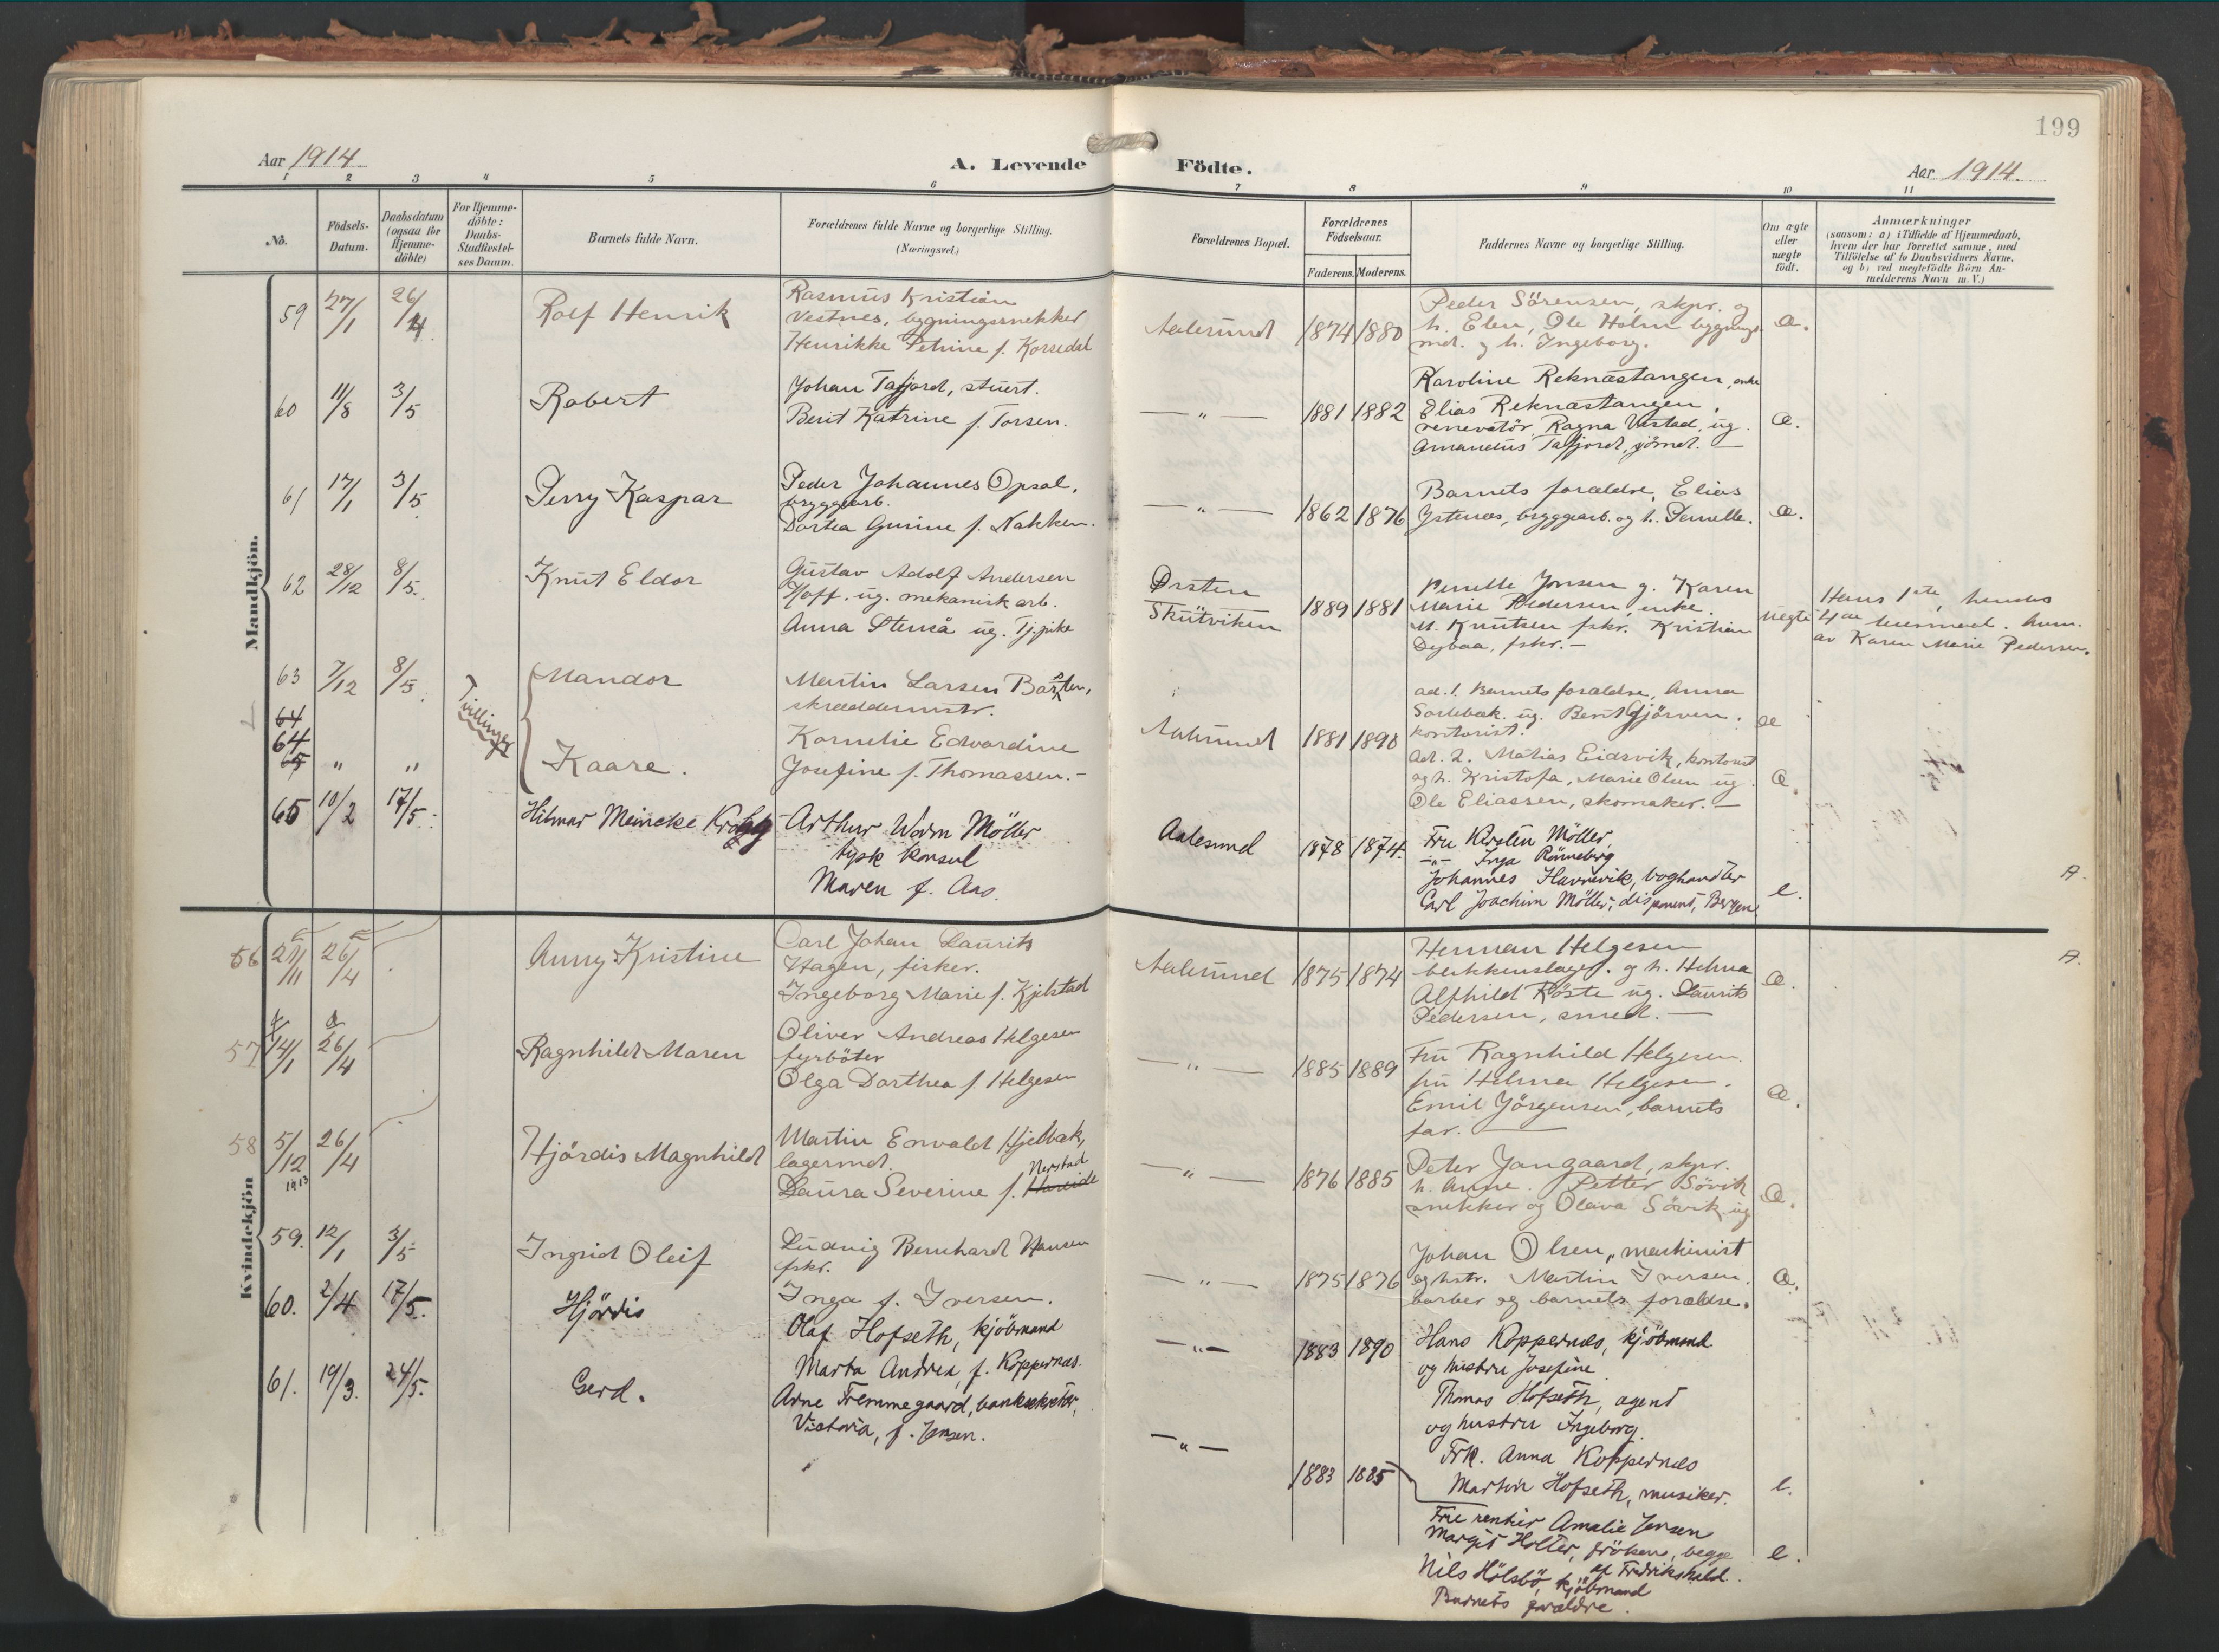 199
Aar 1914
A. Levende Födte.
Aar 1914.
1 2 3 4 5 6 7 8 9 10 11
No.
Födsels-
Datum.
Daabsdatum
(ogsaa for
Hjemme-
döbte)
For Hjemme-
döbte:
Daabs-
Stadfæstel-
ses Datum.
Barnets fulde Navn.
Forældrenes fulde Navne og borgerlige Stilling.
(Næringsvei.)
Forældrenes Bopæl.
Forældrenes
Födselsaar.
Faderens. Moderens.
Faddernes Navne og borgerlige Stilling.
Om ægte
eller
uægte
födt.
Anmærkninger
(saasom: a) i Tilfælde af Hjemmedaab,
hvem der har forrettet samme, med
Tilföielse af to Daabsvidners Navne,
og b) ved uægtefödte Börn An-
melderens Navn m. V.)
Mandkjön.
59 27/1 26/4 Rolf Henrik
Rasmus Kristian
Vestnes, bygningssnekker
Henrikke Petrine f. Korsedal
Aalesund 1874 1880
Peder Sörensen, skpr. og
h. Elen, Ole Holm bygnings
md. og h. Ingeborg.
æ.
60 11/8 3/5 Robert
Johan Tafjord, stuert.
Berit Katrine f. Torsen.
— " — 1881 1882
Karoline Reknæstangen, enke
Elias Reknæstangen,
renevatör, Ragna Vestad, ug.
Amandus Tafjord, gömd. —
æ.
61 17/1 3/5 Perry Kaspar
Peder Johannes Opsal,
bryggearb.
Dortea Gurine f. Nakken.
— " — 1862 1876
Barnets forældre, Elias
Ystenes, bryggearb. og h. Pernelle.
æ.
62 28/12 8/5. Knut Eldor
Gustav Adolf Andersen
Hoff. ug. mekanisk arb.
Anna Stenså ug. Tj.pike
Ørsten
Skutviken
1889 1881
Pernille Jonsen g. Karen
Marie Pedersen, enke.
M. Knutsen fskr. Kristian
Dybaa, fskr. —
uegte
Hans 1ste, hendes
4de
av Karen Marie Pedersen.
63 7/12 8/5. Tvillinger Mandor
Martin Larsen
skræddermstr.
Kornelie Edvardine
Josefine f. Thomassen. -
Aalesund 1881 1890
ad. 1. Barnets forældre, Anna
ug. Berit Gjörven.
kontorist.
æ
64
64
65 " " Kaare.
ad. 2. Matias Eidsvik, kontorist
og h. Kristofa, Marie Olsen ug.
Ole Eliassen, skomaker. —
æ.
65 10/2 17/5. Hilmar Meincke Krohg
Arthur Worm Möller
tysk konsul
Maren f. Aas.
Aalesund 1878 1874.
Fru Kirsten Möller,
—"— Inga Rönneberg
Johannes Havnevik, boghandler
Carl Joachim Möller, disponent, Bergen
e.
A.
Kvindekjön
56 21/11 26/4 Anny Kristine
Carl Johan Laurits
Hagen, fisker.
Ingeborg Marie f. Kjelstad
Aalesund 1875 1874
Herman Helgesen
blikkenslager. og h. Helma
Alfhild Röste ug. Laurits
Pedersen, smed. —
æ.
A.
57 14/1 26/4 Ragnhild Maren
Oliver Andreas Helgesen
fyrböter
Olga Dorthea f. Helgesen
— " — 1885 1889
Fru Ragnhild Helgesen.
fru Helma Helgesen.
Emil Jörgensen, barnets
far. —
æ.
58 5/12 1913 26/4 Hjördis Magnhild
Martin Envald Hjelbak,
lagermd.
Nerstad
Laura Severine f. Hareide
— " — 1876 1885
Peter Jangaard, skpr.
h. Anne. Petter Sövik
snekker og Olava Sövik ug
æ.
59. 12/1 3/5 Ingrid Oleif
Ludvig Bernhard Hansen
fskr.
Inga f. Iversen.
— " — 1875 1876
Johan Olsen, maskinist
og hstr. Martin Iversen.
barber og barnets forældre.
æ.
60. 2/4 17/5. Hjördis
Olaf Hofseth, kjöbmand
Marta Andrea, f. Koppernæs.
— " — 1883 1890
Hans Koppernæs, kjöbmand
og hustru Josefine
Thomas Hofseth, agent
og hustru Ingeborg.
Frk. Anna Koppernæs
Martin Hofseth, musiker.
e.
61. 19/3. 24/5. Gerd.
Arne Fremmegaard, banksekretær,
Victoria, f. Jensen.
— " — 1883 1885
Frue rentier Amalie Jensen
Margit Holter, fröken, begge
af Fredrikshald.
Nils Hölsbö, kjöbmand
Barnets forældre.
e.